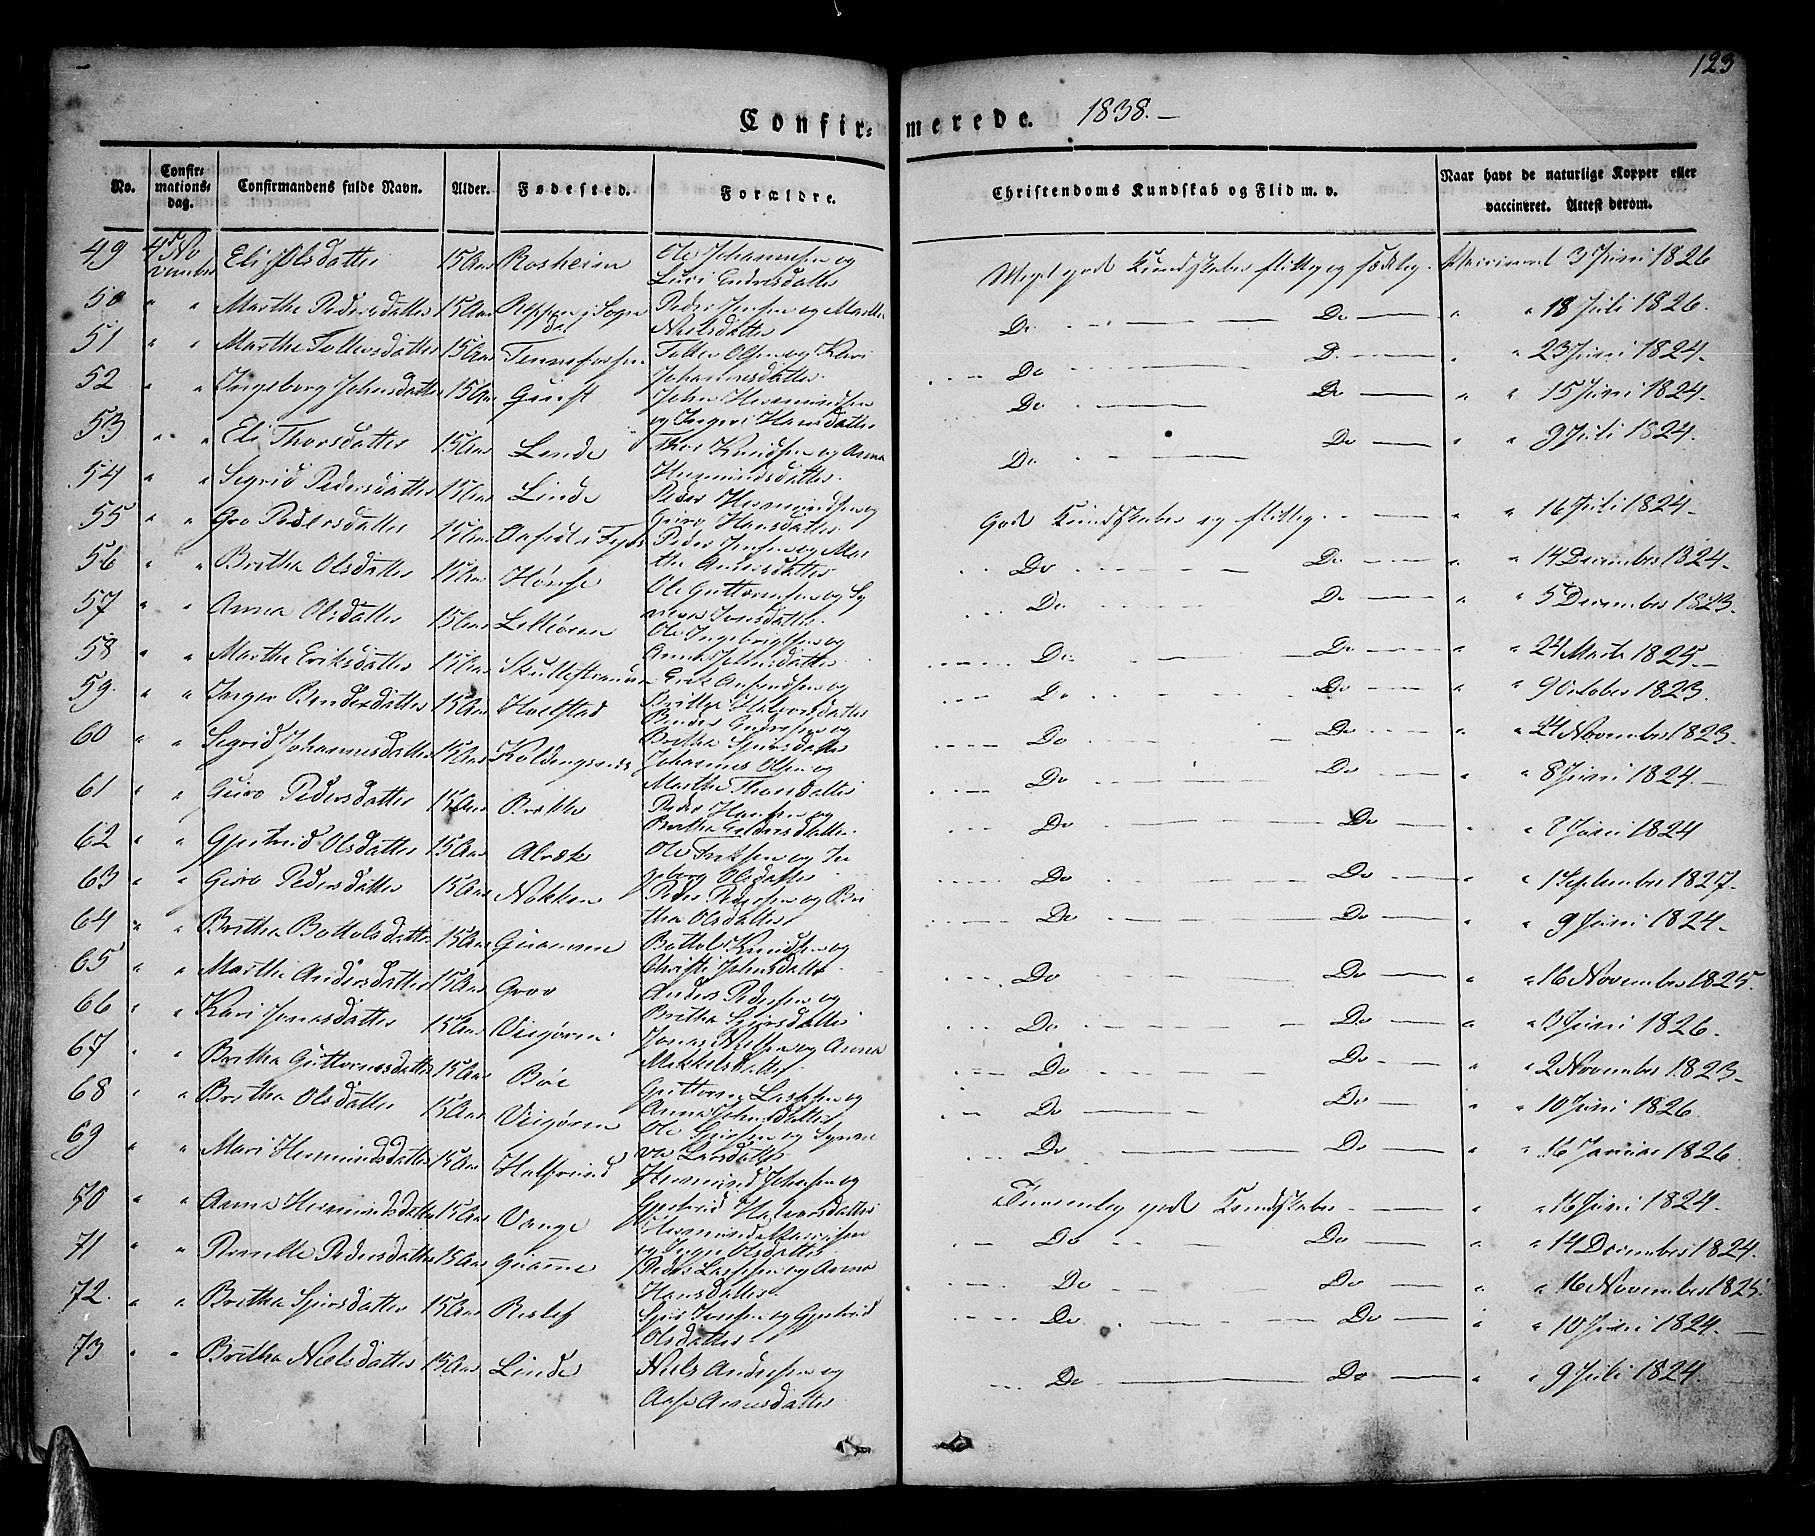 123
Confirmerede. 1838.-
No.
Confirmationsdag.
Confirmandens fulde Navn.
Alder.
Fødested.
Forældre.
Christendoms Kundskab og Flid m. v.
Naar havt de naturlige Kopper eller
vaccineret. Attest derom.
49 4de November Eli Olsdatter 15 Aar Rosheim Ole Johannesen og Meget god Kundskaber flittig og sædelig. Vaccineret 3 Juni 1826
Endresdatter
50 " " Marthe Pedersdatter 15 Aar i Sogn Peder Jensen og Marthe Do Do " " 18 Juli 1826.
Nielsdatter
51 " " Marthe Tollefsdatter 15 Aar Tennefossen Tollew Olsen og Kari Do D. " " 23 Juni 1824.
Johannesdatter
52 " " Ingeborg Johnsdatter 15 Aar John Hermundsen Do Do " " 15 Juni 1824.
og Ingeri Hansdatter
53 " " Eli Thorsdatter 15 Aar Linde Thor Knudsen og Anna Do Do " " 9 Juli 1824.
Hermundsdatter
54 " " Segrid Pedersdatter 15 Aar Linde Peder Hermundsen og God Kundskaber og flittig. " " 16 Juli 1824.
Guro Hansdatter
55 " " Gro Pedersdatter 15 Aar Peder Jensen og Mar Do Do " " 14 December 1824.
the
56 " " Britha Olsdatter 15 Aar Hønsi Ole Guttormsen og Sy Do Do " " 5 December 1823.
neva Jonsdatter
57 " " Anna Olsdatter 15 Aar Letløren Ole Ingebrigtsen og Do Do " " 24 Marts 1825.
Anna
58 " " Marthe Eriksdatter 15 Aar Erik Amundsen og Do Do " " 9 October 1823.
Brithe Halvorsdatter
59. " " Inger Bendesdatter 15 Aar Hvelstad Bendes Endresen og Do Do " " 24 November 1823.
Britha Sjursdatter
60 " " Segrid Johannesdatter 15 Aar Johannes Olsen og Do Do " " 8 Juni 1824.
Marthe Thorsdatter
61 " " Guro Pedersdatter 15 Aar Brekke Peder Hansen og Do Do " " Juni 1824
Britha Endresdatter
62 " " Gjertrud Olsdatter 15 Aar Alrek Ole Eriksen og In Do Do " " 1 September 1827.
geborg Olsdatter
63 " " Guro Pedersdatter 15 Aar Nokken Peder Pedersen og Bri Do Do " " 9 Juni 1824.
tha Olsdatter
64 " " Britha Bottolsdatter 15 Aar Guamme Bottolv Knudsen og Do Do " " 16 November 1825.
Christi Johnsdatter
65 " " Marthe Andersdatter 15 Aar Grov Anders Pedersen og Do Do " " 3 Juni 1826.
Britha Sjursdatter
66 " " Kari Jonasdatter 15 Aar Viigøren Jonas Nielsen og Anna Do Do " " 2 November 1823.
Mikkelsdatter
67 " " Britha Guttormsdatter 15 Aar Böe Guttorm Lassesen og Do Do " " 10 Juni 1826.
Anna Johnsdatter
68 " " Britha Olsdatter 15 Aar Viigøren Ole Sjursen og Synne Do Do " " 16 Januar 1826.
va Larsdatter
69 " " Mari Hermundsdatter 15 Aar Halfvrind Hermund Johnsen og Temmelig god Kundskaber " 16 Juni 1824.
Gjertrud Halvorsdatter
70 " " Anna Hermundsdatter 15 Aar Vange Hermund Do Do " " 14 December 1824.
og Inger Olsdatter
71 " " Pedersdatter 15 Aar Guamme Peder Lassesen og Anna Do Do " " 16 November 1825.
Hansdatter
72. " " Britha Sjursdatter 15 Aar Sjur Jensen og Gjertrud Do Do " " 10 Juni 1824.
Olsdatter
73 " " Britha Nielsdatter 15 Aar Linde Niels Andersen og Do Do " " 9 Juli 1824.
Aase